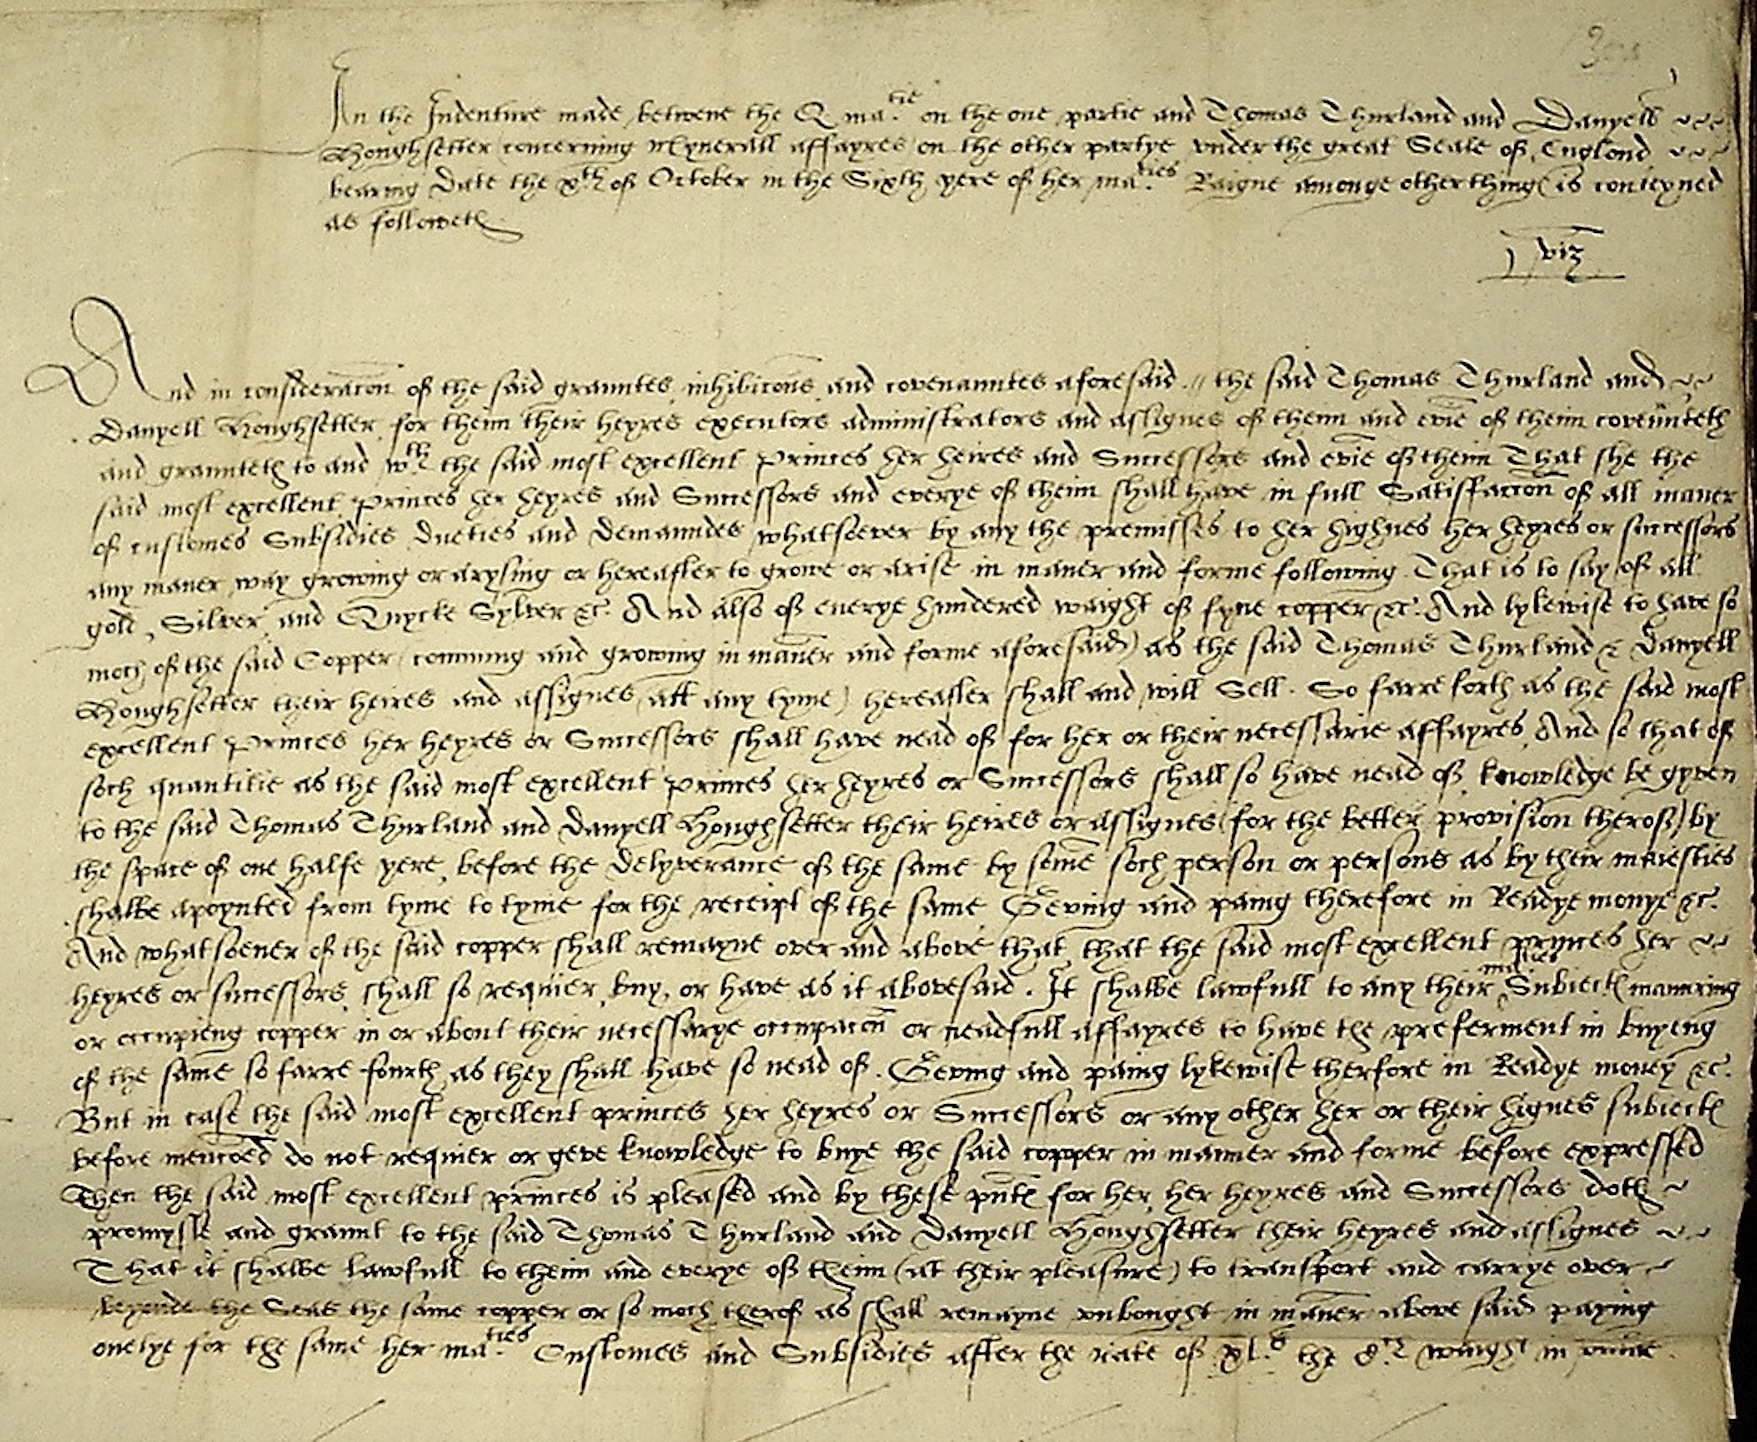 In the Indenture made betwene the Q matie on the one partie and Thomas Thurland and Danyell
Houghsetter concerning mynerall affayres on the other partye under the great Seale of England
bearing date the xth of October in the Sixth yere of her maties Raigne amonge other things is conteyned
as followeth
viz
And in consideracon of the said grauntes inhibicons and covenauntes aforesaid // the said Thomas Thurland and
Danyell Houghsetter for theim their heyres executors administrators and assignes of theim and evie of theim coveunteth
and graunteth to and wth the said most excellent Princes her heires and Successors and evie of theim That she the
said most excellent Princes her heyres and Successors and everye of theim shall have in full Satisfaccon of all maner
of customes Subsidies dueties and demaundes whatsoever by any the premisses to her highnes her heyres or successors
any maner way growing or arysing or hereafter to growe or arise in maner and forme following That is to say of all
gold, Silver and Quycke Sylver &c And also of euerye hundered waight of fyne copper &c. And lykewise to have so
moch of the said Copper (comming and growing in maner and forme aforesaid) as the said Thomas Thurland & Danyell
Houghsetter their heires and assignes (att any tyme) hereafter shall and will Sell. So farre forth as the said most
excellent Princes her heyres or Successors shall have nead of for her or their necessarie affayres And so that of
soch quantitie as the said most excellent Princes her heyres or Successors shall so have nead of, knowledge be gyven
to the said Thomas Thurland and Danyell Houghsetter their heires or assignes (for the better provision therof) by
the space of one halfe yere, before the delyverance of the same by some soch person or persons as by their maiesties
shalbe apoynted from tyme to tyme for the receipt of the same Geving and paing therefore in Readye monye &c.
And whatsoeuer of the said copper shall remayne over and above that, that the said most excellent princes her
heyres or successors, shall so requier, buy, or have as it abovesaid. It shalbe lawfull to any their maties Subiects manuring
or occupieng copper in or about their necessarye occupacon or neadfull affayres to have the preferment in buyeng
of the same so farre fourth as they shall have so nead of. Geving and paing lykewise therfore in Readye money &c.
But in case the said most excellent princes her heyres or Successors or any other her or their highnes subiects
before mencoed do not requier or geve knowledge to buye the said copper in manner and forme before expressed
Then the said most excellent princes is pleased and by these pnts for her, her heyres and Successors doth
promysse and graunt to the said Thomas Thurland and Danyell Houghsetter their heyres and assignes
That it shalbe lawfull to theim and everye of theim (at their pleasure) to transport and carrye over
beyonde the Seas the same copper or so moch therof as shall remayne unbought in maner above said paying
onelye for the same her maties Customes and Subsidies after the rate of xls the waight in